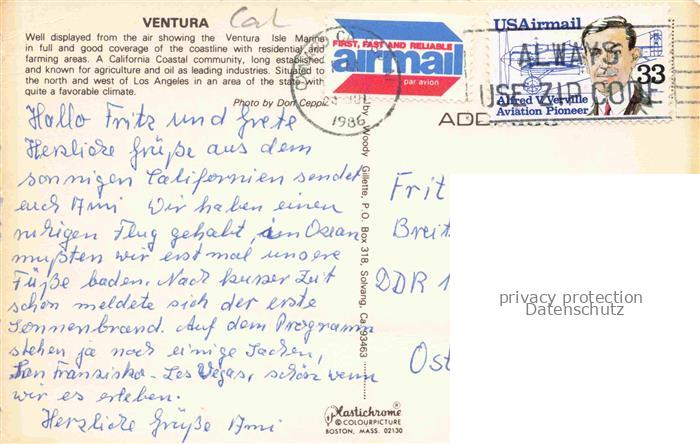 VENTURA Cal
Well displayed from the air showing the Ventura Isle Marina
in full and good coverage of the coastline with residential and
farming areas. A California Coastal community, long established
and known for agriculture and oil as leading industries. Situated to
the north and west of Los Angeles in an area of the state with
quite a favorable climate.
Photo by Don Ceppi
FIRST, FAST AND RELIABLE
airmail
par avion
1986
USAirmail
33
Alfred V. Verville
Aviation Pioneer
ALWAYS
USE ZIP CODE
Hallo Fritz und Grete
Herzliche Grüße aus dem
sonnigen Californien sendet
euch Ami Wir haben einen
ruhigen Flug gehabt, im Ozean
mußten wir erst mal unsere
Füße baden. Nach kurzer Zeit
schon meldete sich der erste
Sonnenbrand. Auf dem Programm
stehen ja noch einige Sachen,
San Franzisko - Les Vegas, schön wenn
wir es erleben.
Herzliche Grüße Ami
by Woody Gillette, P.O. Box 318, Solvang, Ca. 93463
Frit
Breit
DDR 1
Ost
privacy protection
Datenschutz
Plastichrome®
© COLOURPICTURE
BOSTON, MASS. 02130